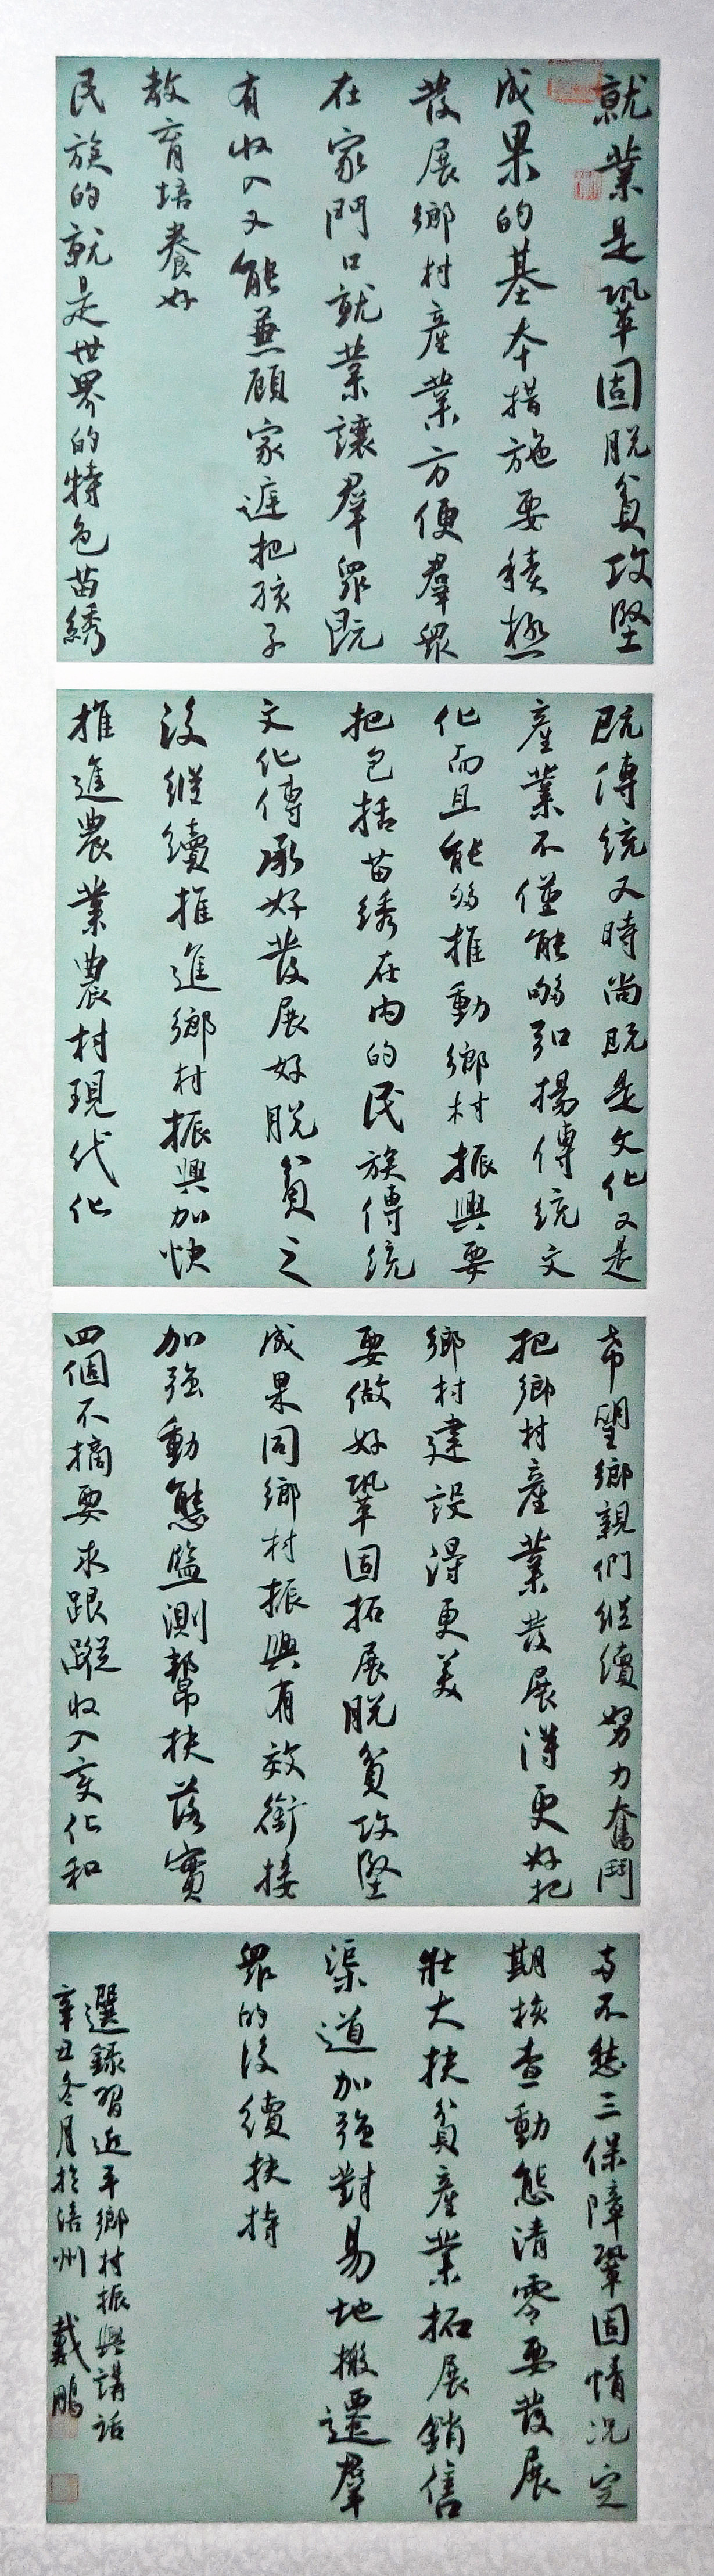 就業是鞏固脫貧攻堅
成果的基本措施要積極
發展鄉村產業方便羣眾
在家門口就業讓羣眾既
有收入又能兼顧家庭把孩子
教育培養好
民族的就是世界的特色苗綉
既傳統又時尚既是文化又是
產業不僅能夠弘揚傳統文
化而且能夠推動鄉村振興要
把包括苗綉在內的民族傳統
文化傳承好發展好脫貧之
後繼續推進鄉村振興加快
推進農業農村現代化
希望鄉親們繼續努力奮鬥
把鄉村產業發展得更好把
鄉村建設得更美
要做好鞏固拓展脫貧攻堅
成果同鄉村振興有效銜接
加強動態監測幫扶落實
四個不摘要求跟蹤收入變化和
兩不愁三保障鞏固情況定
期核查動態清零要發展
壯大扶貧產業拓展銷售
渠道加強對易地搬遷羣
眾的後續扶持
選錄習近平鄉村振興講話
辛丑冬月於涪州 戴鵬